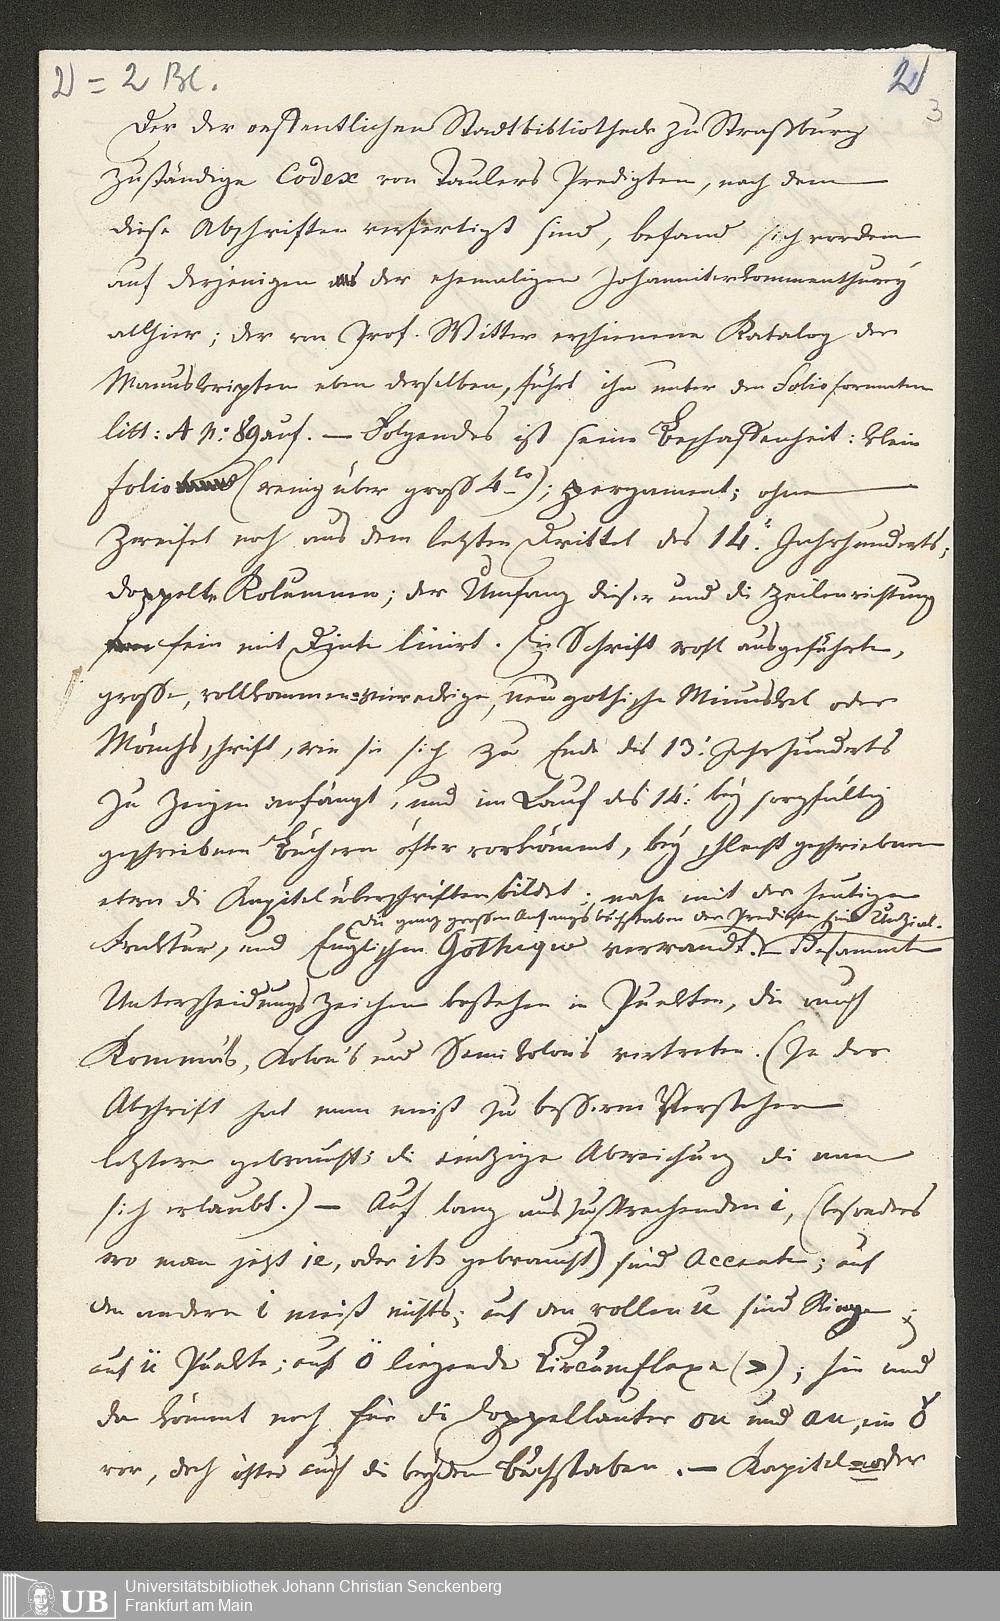 2) = 2 Bl.
2)
3
Der der oeffentlichen Stadtbibliothek zu Straßburg
zuständige Codex von Taulers Predigten, nach dem
diese Abschriften verfertigt sind, befand sich vordem
auf derjenigen der ehemaligen Johanniterkommenthurey
allhier; der von Prof. Witter erschienene Katalog der
Manuskripten eben derselben, führt ihn unter den Folioformaten
litt: A n: 89 auf. — Folgendes ist seine Beschaffenheit: klein
folio (wenig über gross 4to); pergament; ohne
Zweifel noch aus dem letzten Drittel des 14. Jahrhunderts;
doppelte Kolumnen; der Umfang dieser und die Zeilenrichtung
fein mit Dinte linirt. Die Schrift wohl ausgeführte,
grosse, vollkommen-viereckige, neugothische Minuskel oder
Mönchsschrift, wie sie sich zu Ende des 13. Jahrhunderts
zu zeigen anfängt, und im Lauf des 14. bey sorgfältig
geschriebnen Büchern öfter vorkömmt, bey schlecht geschriebnen
etwa die Kapitelüberschriften bildet; nahe mit der heutigen
Die ganz großen Anfangsbuchstaben der Predigten sind Unzial.
Fraktur, und Englischen Gothique verwandt. — Besammte
Unterscheidungszeichen bestehen in Puncten, die auch
Komma's, Kolon's und Semikolon's vertreten. (In der
Abschrift hat man meist zu besserem Verstehen
letztere gebraucht; die einzige Abweichung die man
sich erlaubt.) — Auf lang auszusprechenden i, (besonders
wo man jetzt ie, oder ih gebraucht) sind Accente; auf
den andern i meist nichts; auf den vollen u sind Ringe;
auf ü Punkte; auf ö liegende Circumflexe (>); hie und
da kömmt noch für die Doppellauter ou und au, ein ǒ
vor, doch öfter auch die beyden Buchstaben. — Kapitel- oder
Universitätsbibliothek Johann Christian Senckenberg
Frankfurt am Main
UB